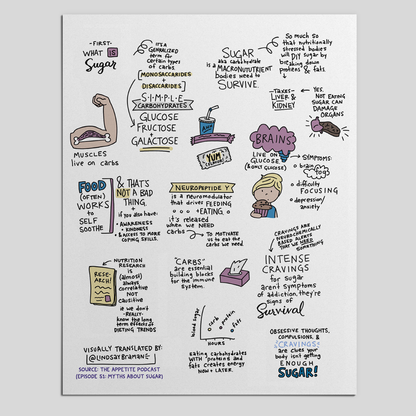 -FIRST-
WHAT IS
Sugar
IT'S A
GENERALIZED
TERM for
certain types
of carbs
MONOSACCARIDES
+
DISACCARIDES
S·I·M·P·L·E
CARBOHYDRATES
GLUCOSE
FRUCTOSE
+
GALACTOSE
MUSCLES
live on carbs
SUGAR
aka carbohydrate
is a MACRONUTRIENT
bodies need to
SURVIVE.
So much so
that nutritionally
stressed bodies
will DIY sugar by
breaking down
proteins & fats
-TAXES-
LIVER &
KIDNEY
YES,
NOT EATING
SUGAR CAN
DAMAGE
ORGANS
YUM
BRAINS
LIVE ON
GLUCOSE
(& ONLY GLUCOSE)
SYMPTOMS:
brain
fog
difficulty
FOCUSING
depression/
anxiety
FOOD
(OFTEN)
WORKS
to
SELF
SOOTHE
& THAT'S
NOT A BAD
THING.
if you also have:
• AWARENESS
• KINDNESS
• & ACCESS TO MORE
COPING SKILLS.
NEUROPEPTIDE Y
is a neuromodulator
that drives FEEDING
•EATING•
it's released
when WE NEED
carbs
To MOTIVATE
us to eat the
carbs we need
CRAVINGS ARE
NEUROCHEMICALLY
BASED ALERTS
THAT WE NEED
SOMETHING
INTENSE
CRAVINGS
for Sugar
aren't symptoms
of addiction, they're
signs of
Survival
RESE-
ARCH!
NUTRITION
RESEARCH is
(almost)
always
correlative
NOT
causitive
& we don't
-REALLY-
know the long
term effects of
DIETING TRENDS
"CARBS"
are essential
building blocks
for the immune
system.
blood sugar
carb
protein
fats
HOURS
Eating carbohydrates
WITH "proteins" and
fats creates energy
NOW + LATER.
OBSESSIVE THOUGHTS,
COMPULSIONS, &
CRAVINGS
are clues your
body isn't getting
ENOUGH
SUGAR!
VISUALLY TRANSLATED BY:
@LINDSAYBRAMAN
SOURCE: THE APPETITE PODCAST
(EPISODE 51: MYTHS ABOUT SUGAR)